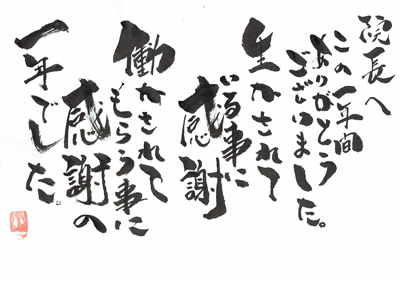 院長へ
この一年間
ありがとう
ございました。
生かされて
いる事に
感謝
働かされて
もらう事に
感謝の
一年でした。